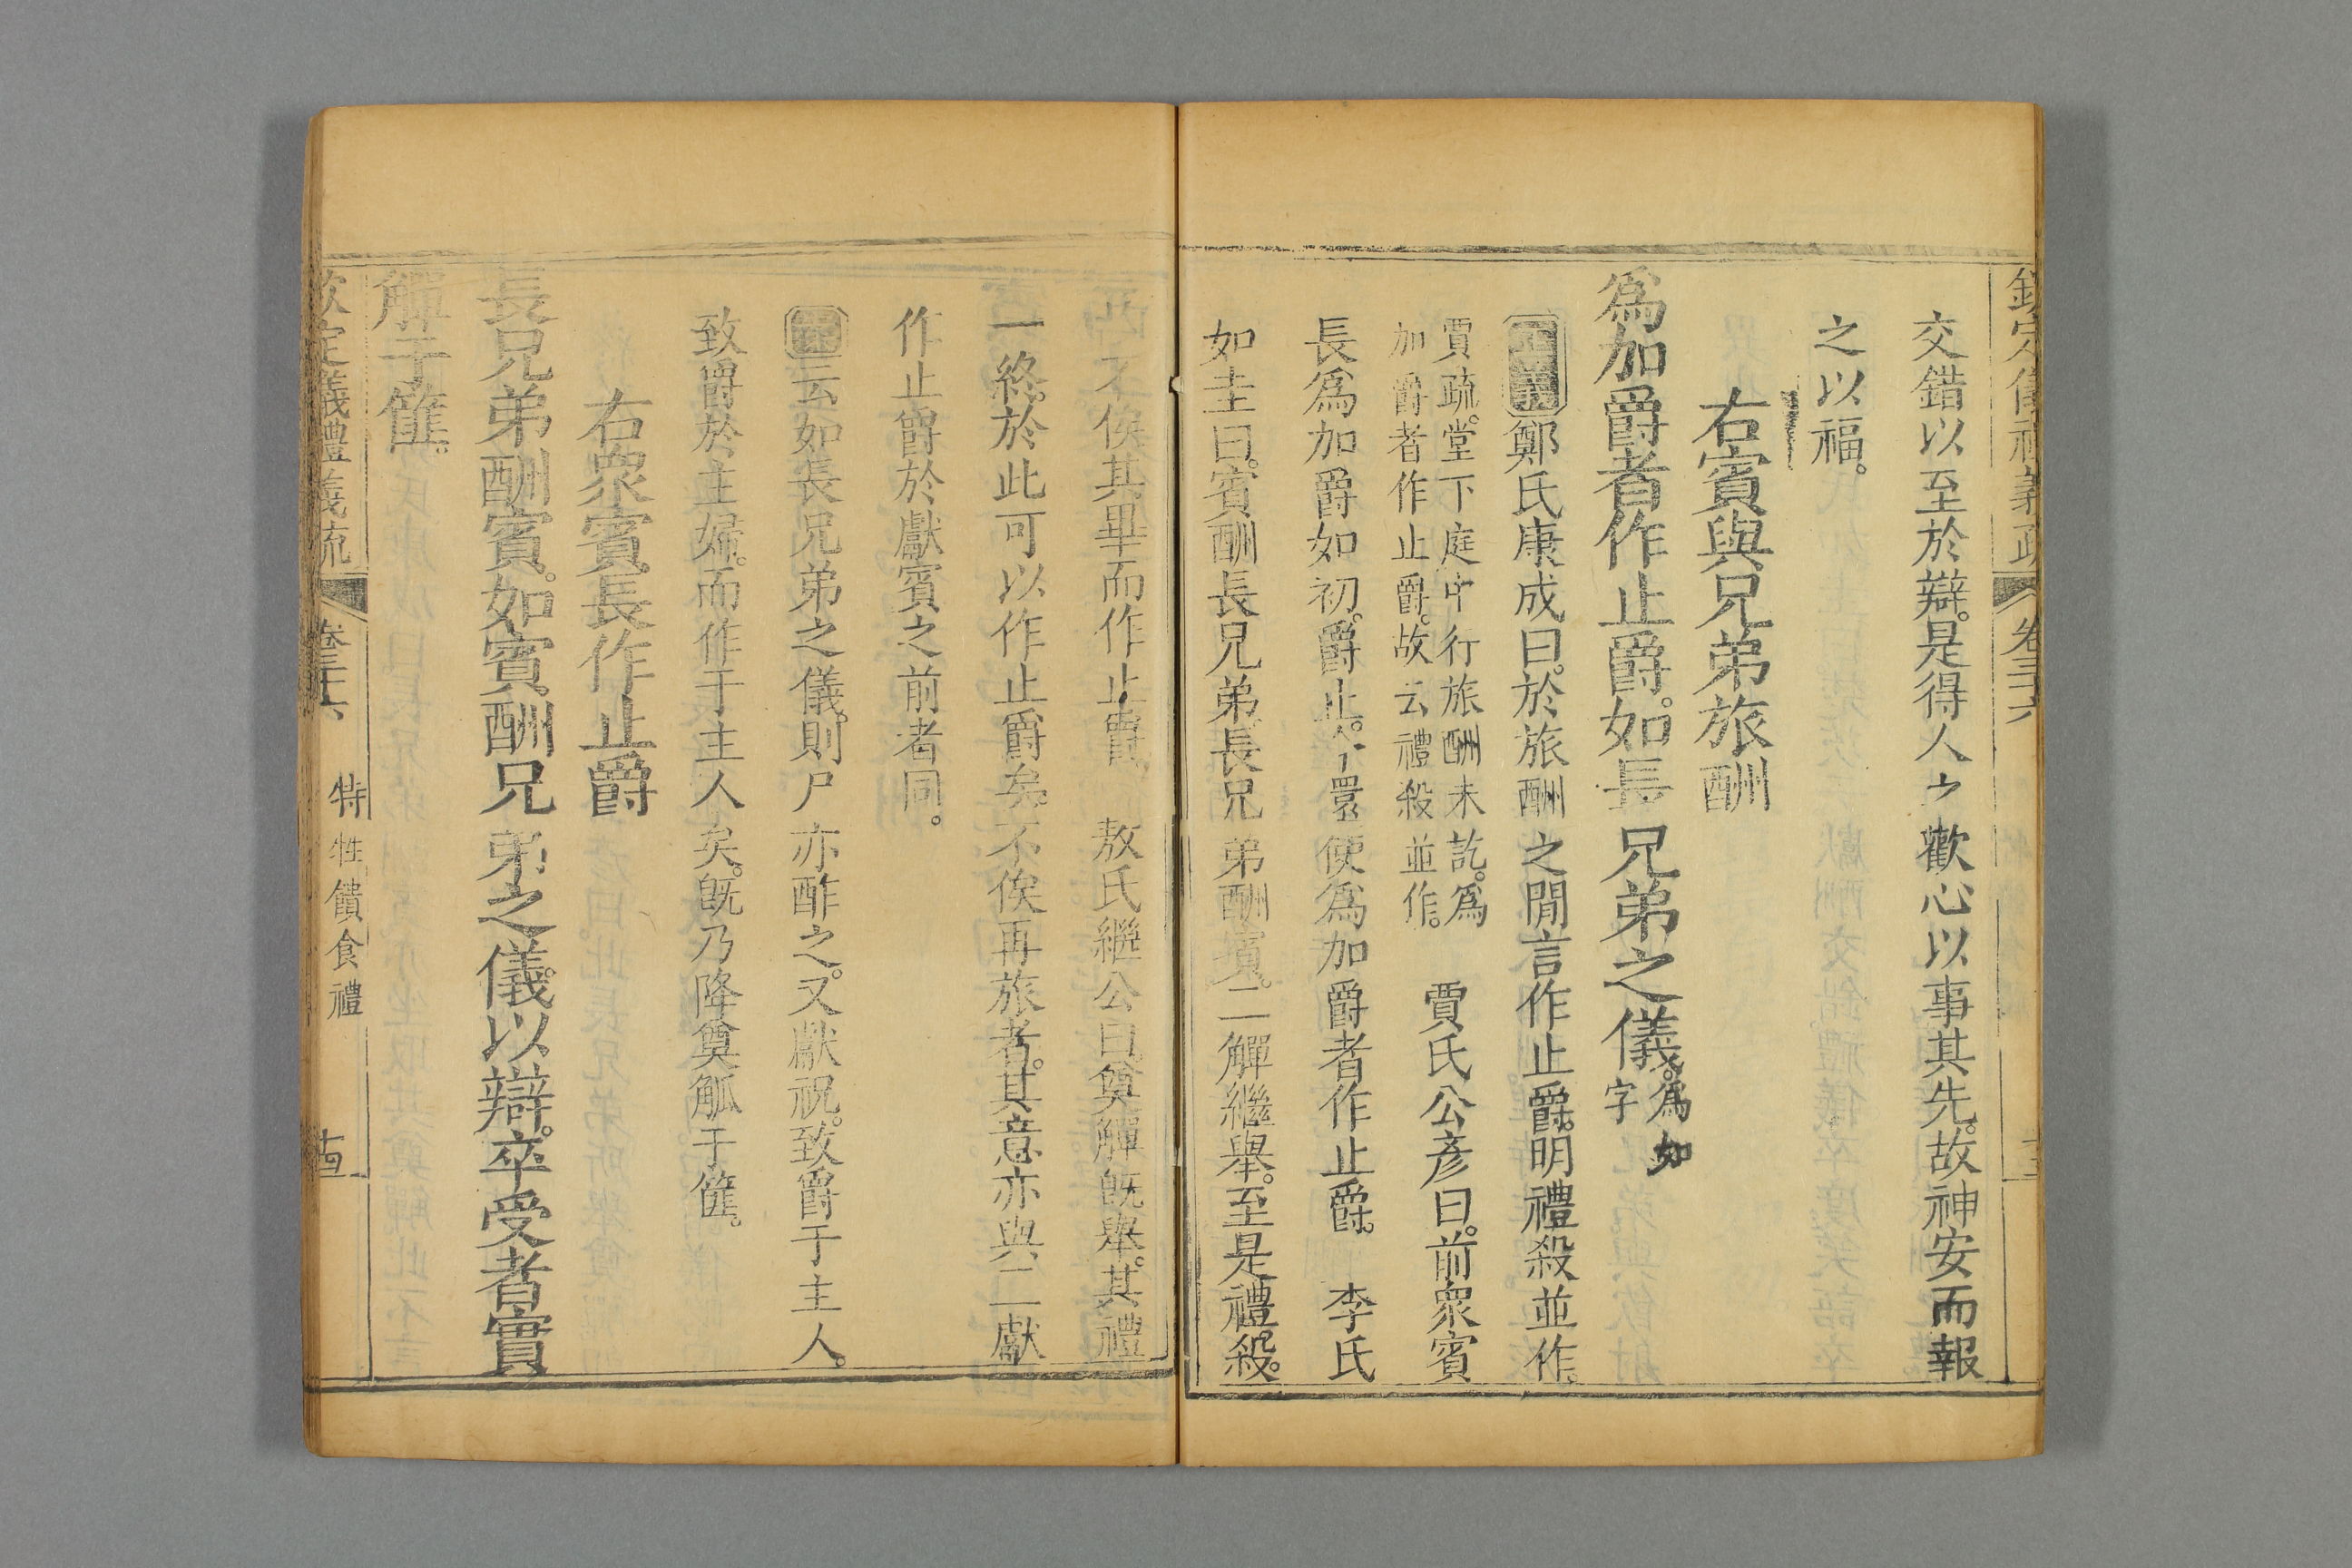 欽定儀禮義疏 卷三十六
交錯以至於辯。是得人之歡心以事其先。故神安而報
之以福。
右賓與兄弟旅酬
爲加爵者作止爵。如長兄弟之儀。爲如字
正義鄭氏康成曰。於旅酬之閒言作止爵。明禮殺並作。
賈疏。堂下庭中行旅酬未訖。爲
加爵者作止爵。故云禮殺並作。
賈氏公彥曰。前衆賓
長爲加爵如初。爵止。還便爲加爵者作止爵。 李氏
如圭曰。賓酬長兄弟長兄弟酬賓。二觶繼舉。至是禮殺。
不俟其畢而作止爵 敖氏繼公曰。奠觶旣舉。其禮
一終。於此可以作止爵矣。不俟再旅者。其意亦與二獻
作止爵於獻賓之前者同。
云如長兄弟之儀。則尸亦酢之。又獻祝。致爵于主人。
致爵於主婦。而作于主人矣。旣乃降奠觚于篚。
右衆賓長作止爵
長兄弟酬賓。如賓酬兄弟之儀。以辯。卒受者實
觶于篚。
欽定儀禮義疏 卷三十六 特牲饋食禮